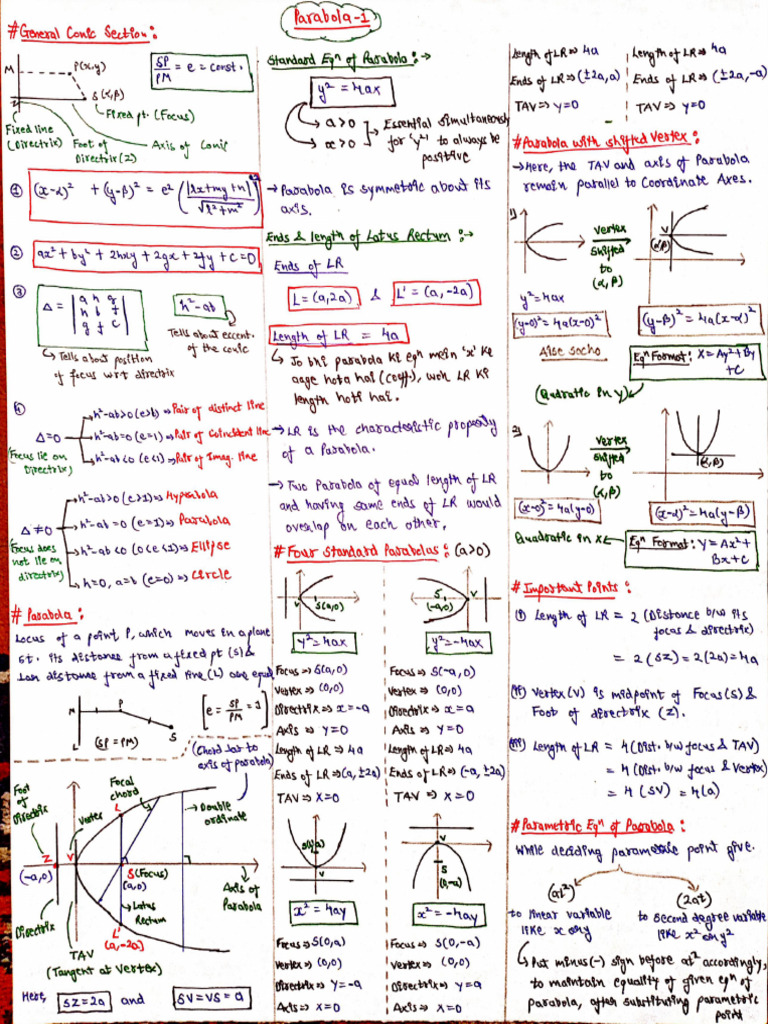 Parabola-1
# General Conic Section :
M
P(x,y)
S(α,β)
Z
SP/PM = e = const.
Fixed pt. (Focus)
Fixed line (Directrix)
Foot of Directrix(Z)
Axis of Conic
① (x-α)² + (y-β)² = e² (|lx+my+n| / √l²+m²)²
② ax²+by²+2hxy+2gx+2fy+c=0
③ Δ = |a h g|
|h b f|
|g f c|
h²-ab
Tells about eccent. of the conic
↳ Tells about position
of focus wrt directrix
④ Δ=0
(Focus lie on Directrix)
h²-ab>0 (e>1) ⇒ Pair of distinct line
h²-ab=0 (e=1) ⇒ Pair of Coincident line
h²-ab<0 (e<1) ⇒ Pair of Imag. line
Δ≠0
(Focus does not lie on directrix)
h²-ab>0 (e>1) ⇒ Hyperbola
h²-ab=0 (e=1) ⇒ Parabola
h²-ab<0 (0<e<1) ⇒ Ellipse
h=0, a=b (e=0) ⇒ Circle
# Parabola :
Locus of a point P, which moves in a plane
st. its distance from a fixed pt (S) &
Lar distance from a fixed line (L) are equal
M
P
S
L
(SP=PM)
[e = SP/PM = 1]
(Chord Lar to
axis of parabola)
Foot of Directrix
Vertex
Focal chord
L
→ Double ordinate
Z
(-a,0)
V
S(Focus)
(a,0)
Axis of Parabola
→ Latus Rectum
L'
(a,-2a)
Directrix
TAV
(Tangent at Vertex)
Here, SZ=2a and SV=VS=a
Standard Eqn of Parabola :→
y² = 4ax
→ a>0
→ x>0
Essential simultaneously
for 'y²' to always be
positive
→ Parabola is symmetric about its
axis.
Ends & length of Latus Rectum :→
Ends of LR
L = (a,2a) & L' = (a,-2a)
Length of LR = 4a
↳ Jo bhi parabola ki eqn mein 'x' ke
aage hota hai (coeff.), woh LR ki
length hoti hai.
→ LR is the characteristic property
of a Parabola.
→ Two Parabola of equal length of LR
and having same ends of LR would
overlap on each other.
# Four Standard Parabolas : (a>0)
V
S(a,0)
y²=4ax
Focus ⇒ S(a,0)
Vertex ⇒ (0,0)
Directrix ⇒ x=-a
Axis ⇒ y=0
Length of LR ⇒ 4a
Ends of LR ⇒ (a,±2a)
TAV ⇒ x=0
S
(-a,0)
V
y²=-4ax
Focus ⇒ S(-a,0)
Vertex ⇒ (0,0)
Directrix ⇒ x=a
Axis ⇒ y=0
Length of LR ⇒ 4a
Ends of LR ⇒ (-a,±2a)
TAV ⇒ x=0
S(0,a)
V
x²=4ay
Focus ⇒ S(0,a)
Vertex ⇒ (0,0)
Directrix ⇒ y=-a
Axis ⇒ x=0
V
S
(0,-a)
x²=-4ay
Focus ⇒ S(0,-a)
Vertex ⇒ (0,0)
Directrix ⇒ y=a
Axis ⇒ x=0
Length of LR ⇒ 4a
Ends of LR ⇒ (±2a,a)
TAV ⇒ y=0
Length of LR ⇒ 4a
Ends of LR ⇒ (±2a,-a)
TAV ⇒ y=0
# Parabola with shifted Vertex :
→ Here, the TAV and axis of Parabola
remain parallel to Coordinate Axes.
1)
Vertex
Shifted
to
(α,β)
V
(α,β)
y²=4ax
(y-0)²=4a(x-0)²
(y-β)²=4a(x-α)²
Aise socho
Eqn Format: X=Ay²+By
+C
(Quadratic in y)
2)
Vertex
Shifted
to
(α,β)
V
(α,β)
(x-0)²=4a(y-0)
(x-α)²=4a(y-β)
Quadratic in x
Eqn Format: Y=Ax²+
Bx+C
# Important Points :
(i) Length of LR = 2 (Distance b/w its
focus & directrix)
= 2 (SZ) = 2(2a) = 4a
(ii) Vertex(V) is midpoint of Focus(S) &
Foot of directrix (Z).
(iii) Length of LR = 4 (Dist. b/w focus & TAV)
= 4 (Dist. b/w focus & Vertex)
= 4 (SV) = 4(a)
# Parametric Eqn of Parabola :
While deciding parametric point give.
(at²)
to linear variable
like x or y
(2at)
to second degree variable
like x² or y²
↳ Put minus(-) sign before at² accordingly,
to maintain equality of given eqn of
parabola, after substituting parametric
point